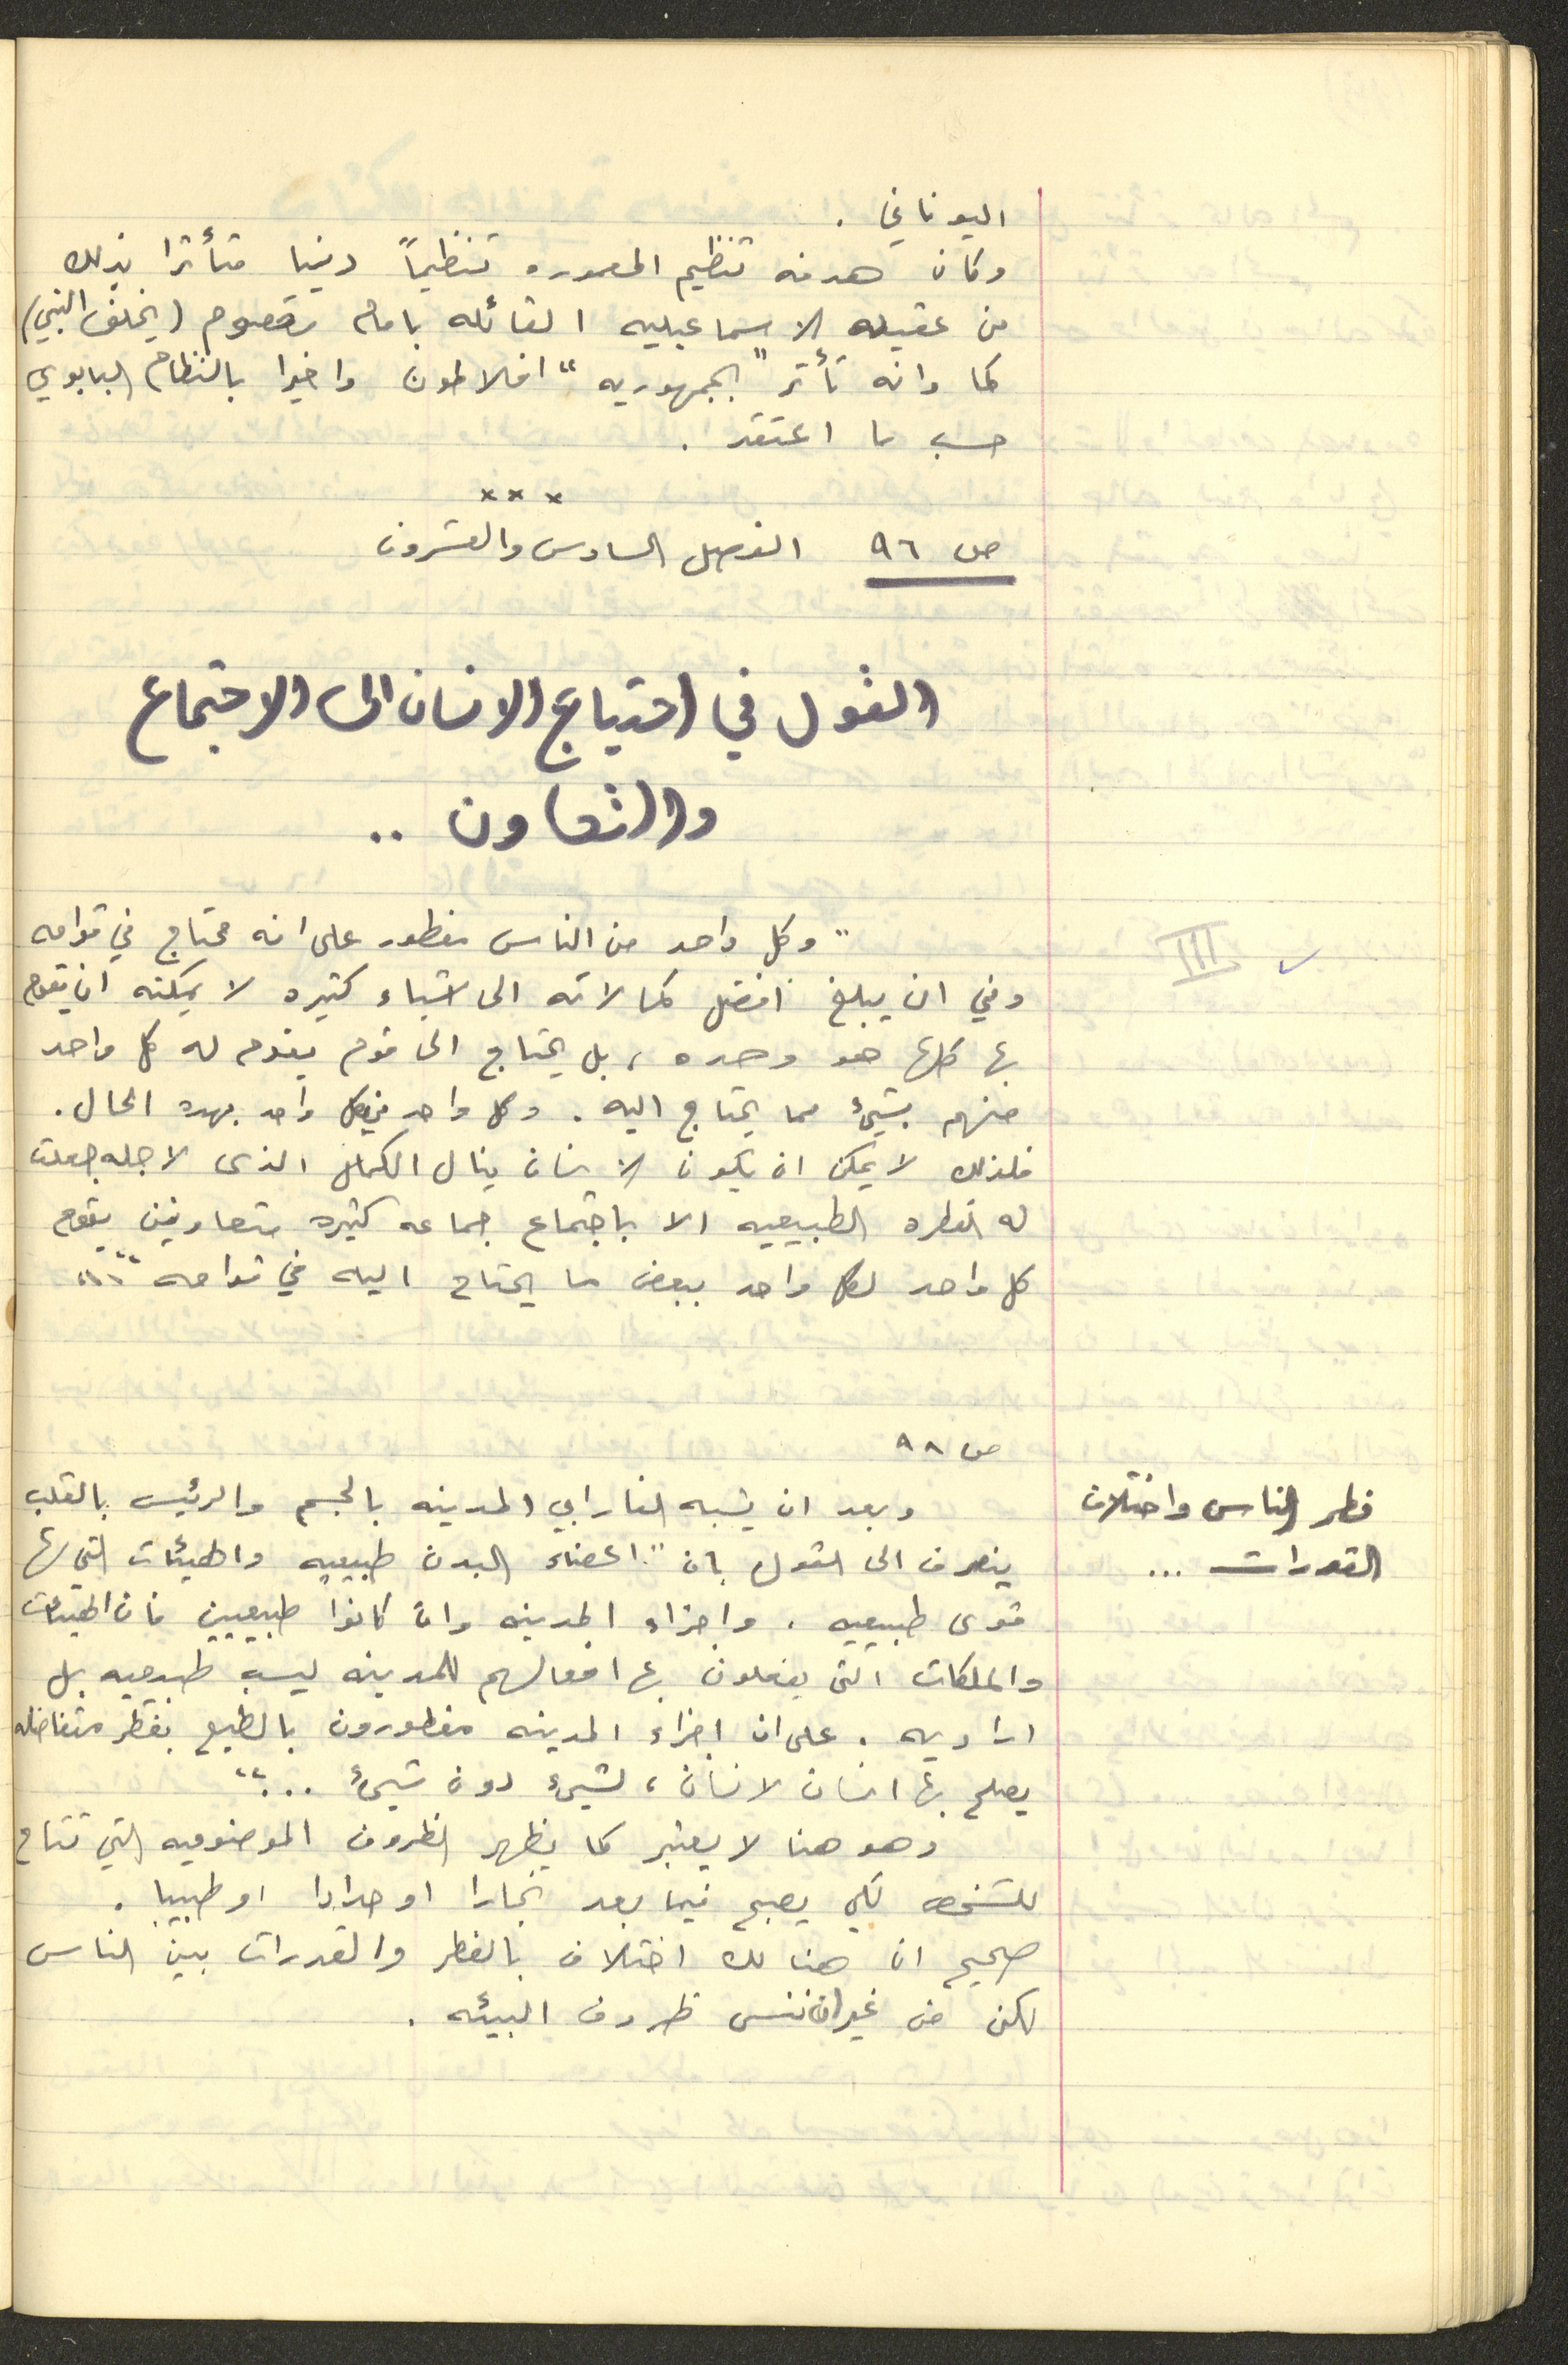 اليوناني .
وكان هدفه تنظيم المعموره تنظيماً دينيا متأثرا بذلك
من عقيده الاسماعيليه القائله بامام معصوم (يخلف النبي)
كما وانه تأثر "بجمهوريه" افلاطون واخيرا بالنظام البابوي
حسب ما اعتقد .
×××
ص ٩٦ الفصل السادس والعشرون
القول في احتياج الانسان الى الاجتماع
والتعاون ..
III
"وكل واحد من الناس مفطور على انه محتاج في قوامه
وفي ان يبلغ افضل كمالاته الى اشياء كثيره لا يمكنه ان يقوم
بها كلها هو وحده ، بل يحتاج الى قوم يقوم له كل واحد
منهم بشيئ مما يحتاج اليه . وكل واحد من كل واحد بهده الحال .
فلذلك لا يمكن ان يكون الانسان ينال الكمال الذى لاجله جعلت
له الفطره الطبيعيه الا باجتماع جماعه كثيره متعاونين يقوم
كل واحد لكل واحد ببعض ما يحتاج اليه في قوامه "..
ص ٩٨
فطر الناس واختلاف
القدرات ...
وبعد ان يشبه الفارابي المدينه بالجسم والرئيس بالقلب
ينصرف الى القول بان ".اعضاء البدن طبيعيه والهيئات التي لها
قوى طبيعيه . واجزاء المدينه وان كانوا طبيعيين فان الهيئات
والملكات التى يفعلون بها افعالهم للمدينه ليست طبيعيه بل
اراديه . على ان اجزاء المدينه مفطورون بالطبع بفطر متفاضله
يصلح بها انسان لانسان ، لشيئ دون شيئ ..."
وهو هنا لا يعتبر كما يظهر الظروف الموضوعيه التي تتاح
للشخص لكي يصبح فيما بعد نجارا او حدادا او طبيبا .
صحيح ان هنالك اختلاف بالفطر والقدرات بين الناس
لكن من غير ان ننسى ظروف البيئه .